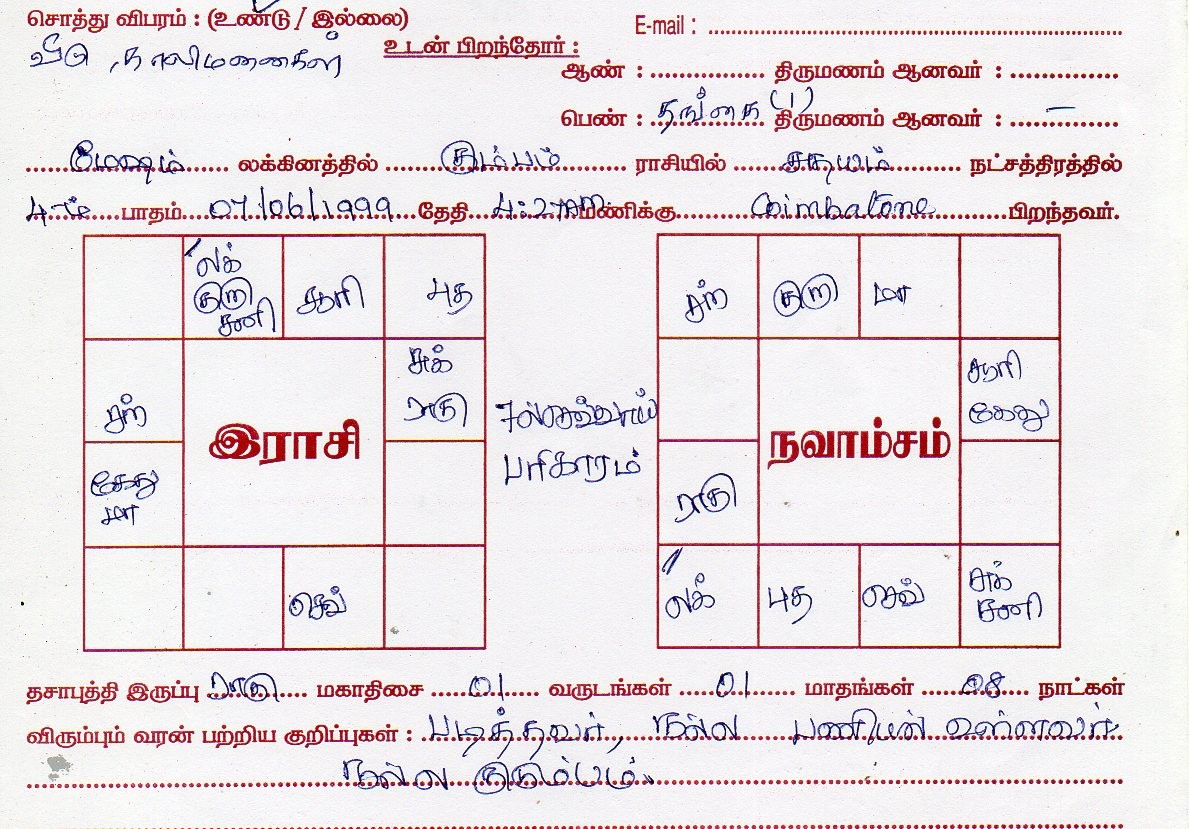 சொத்து விபரம் : (உண்டு / இல்லை)
E-mail : ................
வீடு , காலிமனைகள்
உடன் பிறந்தோர் :
ஆண் : ................ திருமணம் ஆனவர் : ..............
பெண் : தங்கை (1) திருமணம் ஆனவர் : —
மேஷம் லக்கினத்தில் கும்பம் ராசியில் சதயம் நட்சத்திரத்தில்
4-ம் பாதம் 07/06/1999 தேதி 4:27AM மணிக்கு Coimbatore பிறந்தவர்.
லக் குரு சனி
சூரி
புத
சந்
சுக் ராகு
இராசி
கேது மா
செவ்
7ல் செவ்வாய்
பரிகாரம்
சந்
குரு
மா
சூரி கேது
நவாம்சம்
ராகு
லக்
புத
செவ்
சுக் சனி
தசாபுத்தி இருப்பு ராகு மகாதிசை 01 வருடங்கள் 01 மாதங்கள் 08 நாட்கள்
விரும்பும் வரன் பற்றிய குறிப்புகள் : படித்தவர், நல்ல பணியில் உள்ளவர்
நல்ல குடும்பம்.